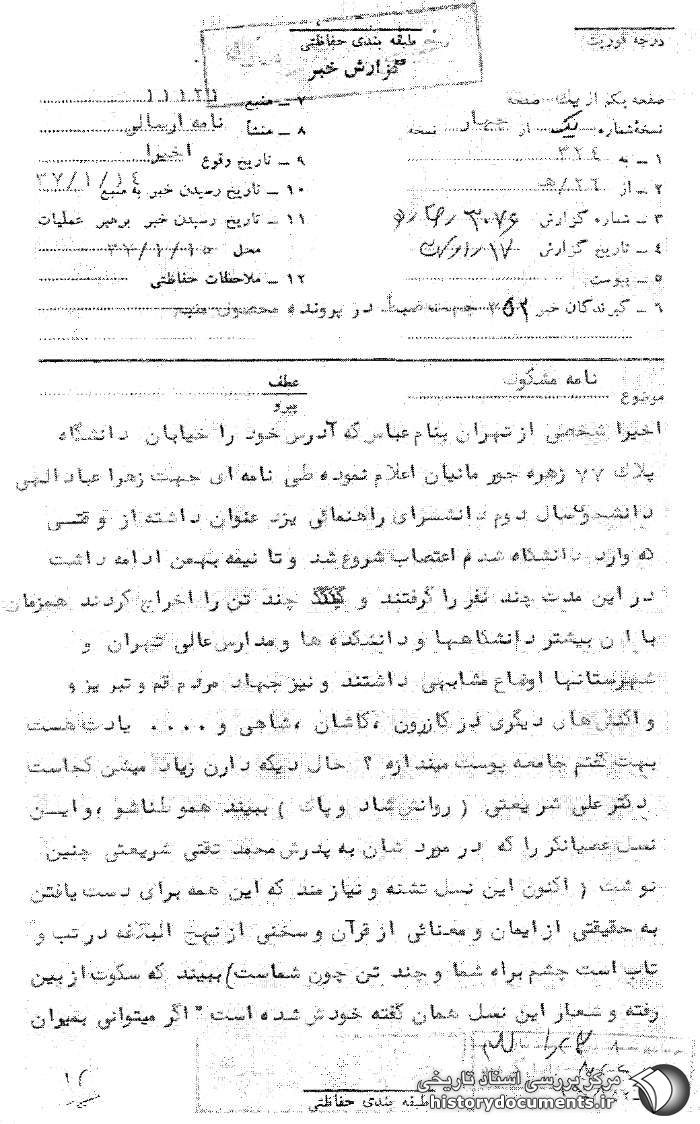 درجه فوریت
طبقه بندی حفاظتی
گزارش خبر
صفحه یکم از یک صفحه
نسخهٔ شماره یک از چهار نسخه
۱ ــ به ۳۲٤
۲ ــ از ۲٦/هـ
۳ ــ شماره گزارش
٤ ــ تاریخ گزارش
۵ ــ پیوست
۶ ــ گیرندگان خبر ۳۵۲ جهت ضبط در پرونده محصولی منبع
۷ ــ منبع ۱۱۱۲۱
۸ ــ منشأ نامه ارسالی
۹ ــ تاریخ وقوع اخیرا
۱۰ ــ تاریخ رسیدن خبر به منبع ۳۷/۱/۱٤
۱۱ ــ تاریخ رسیدن خبر برهبر عملیات
محل ۳۷/۱/۱۵
۱۲ ــ ملاحظات حفاظتی
موضوع نامه مشکوک
عطف
پیرو
اخیرا شخصی از تهران بنام عباس که آدرس خود را خیابان دانشگاه
پلاک ۷۷ زهره جور مانیان اعلام نموده طی نامه ای جهت زهرا عباد الهی
دانشجو سال دوم دانشسرای راهنمائی یزد عنوان داشته از وقتی
که وارد دانشگاه شدم اعتصاب شروع شد و تا نیمه بهمن ادامه داشت
در این مدت چند نفر را گرفتند و چند تن را اخراج کردند همزمان
با این بیشتر دانشگاهها و دانشکده ها و مدارس عالی تهران و
شهرستانها اوضاع مشابهی داشتند و نیز جهاد مردم قم و تبریز و
واکنش های دیگری در کازرون ،کاشان ،شاهی و .... یادت هست
بهت گفتم جامعه پوست میندازه ؟ حال دیگه دارن زیاد میشن کجاست
دکتر علی شریعتی ( روانش شاد و پاک ) ببیند هموطناشو ،و ایـن
نسل عصیانگر را که در مورد شان به پدرش محمد تقتی شریعتی چنین
نوشت ( اکنون این نسل تشنه و نیازمند که این همه برای دست یافتن
به حقیقتی از ایمان و معنائی از قرآن و سخنی از نهج البلاغه در تب و
تاب است چشم براه شما و چند تن چون شماست) ببیند که سکوت از بین
رفته و شعار این نسل همان گفته خودش شده است " اگر میتوانی بمیران
طبقه بندی حفاظتی
مرکز بررسی اسناد تاریخی
historydocuments.ir